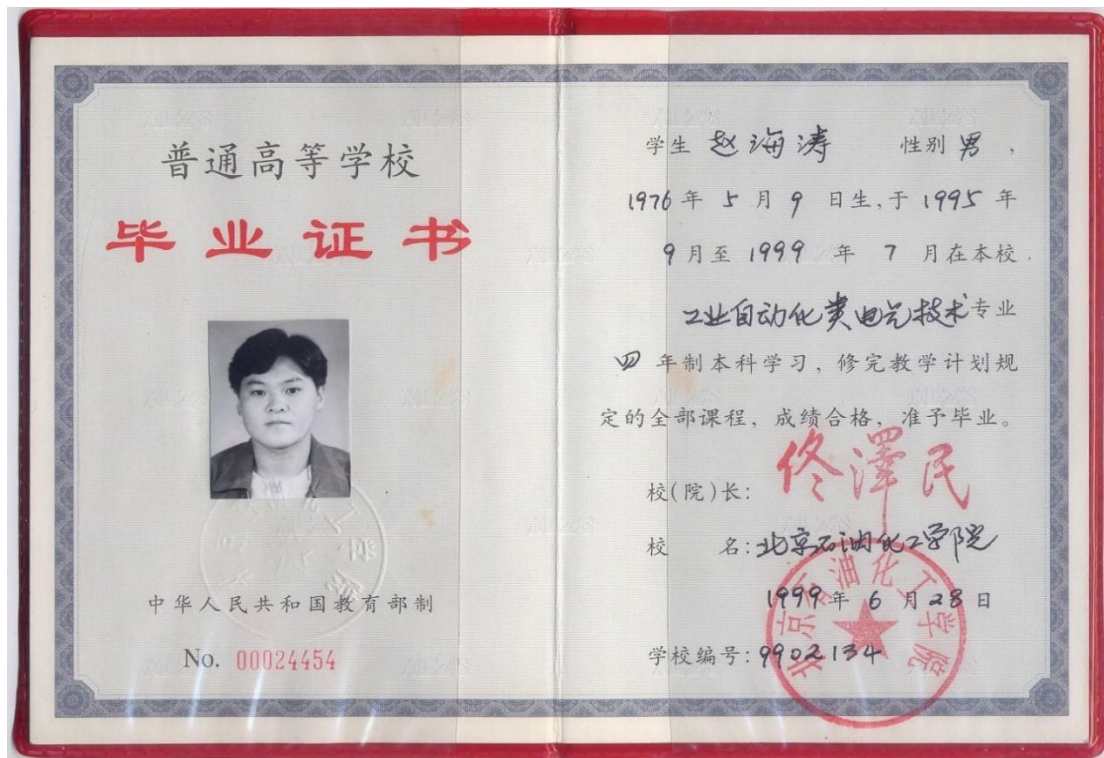 普通高等学校
毕业证书
中华人民共和国教育部制
No. 00024454
学生 赵海涛 性别 男，
1976 年 5 月 9 日生,于 1995 年
9 月至 1999 年 7 月在本校
工业自动化类电气技术专业
四 年制本科学习，修完教学计划规
定的全部课程，成绩合格，准予毕业。
校(院)长: 佟泽民
校 名:北京石油化工学院
1999年 6 月 28 日
学校编号:9902134
北京石油化工学院